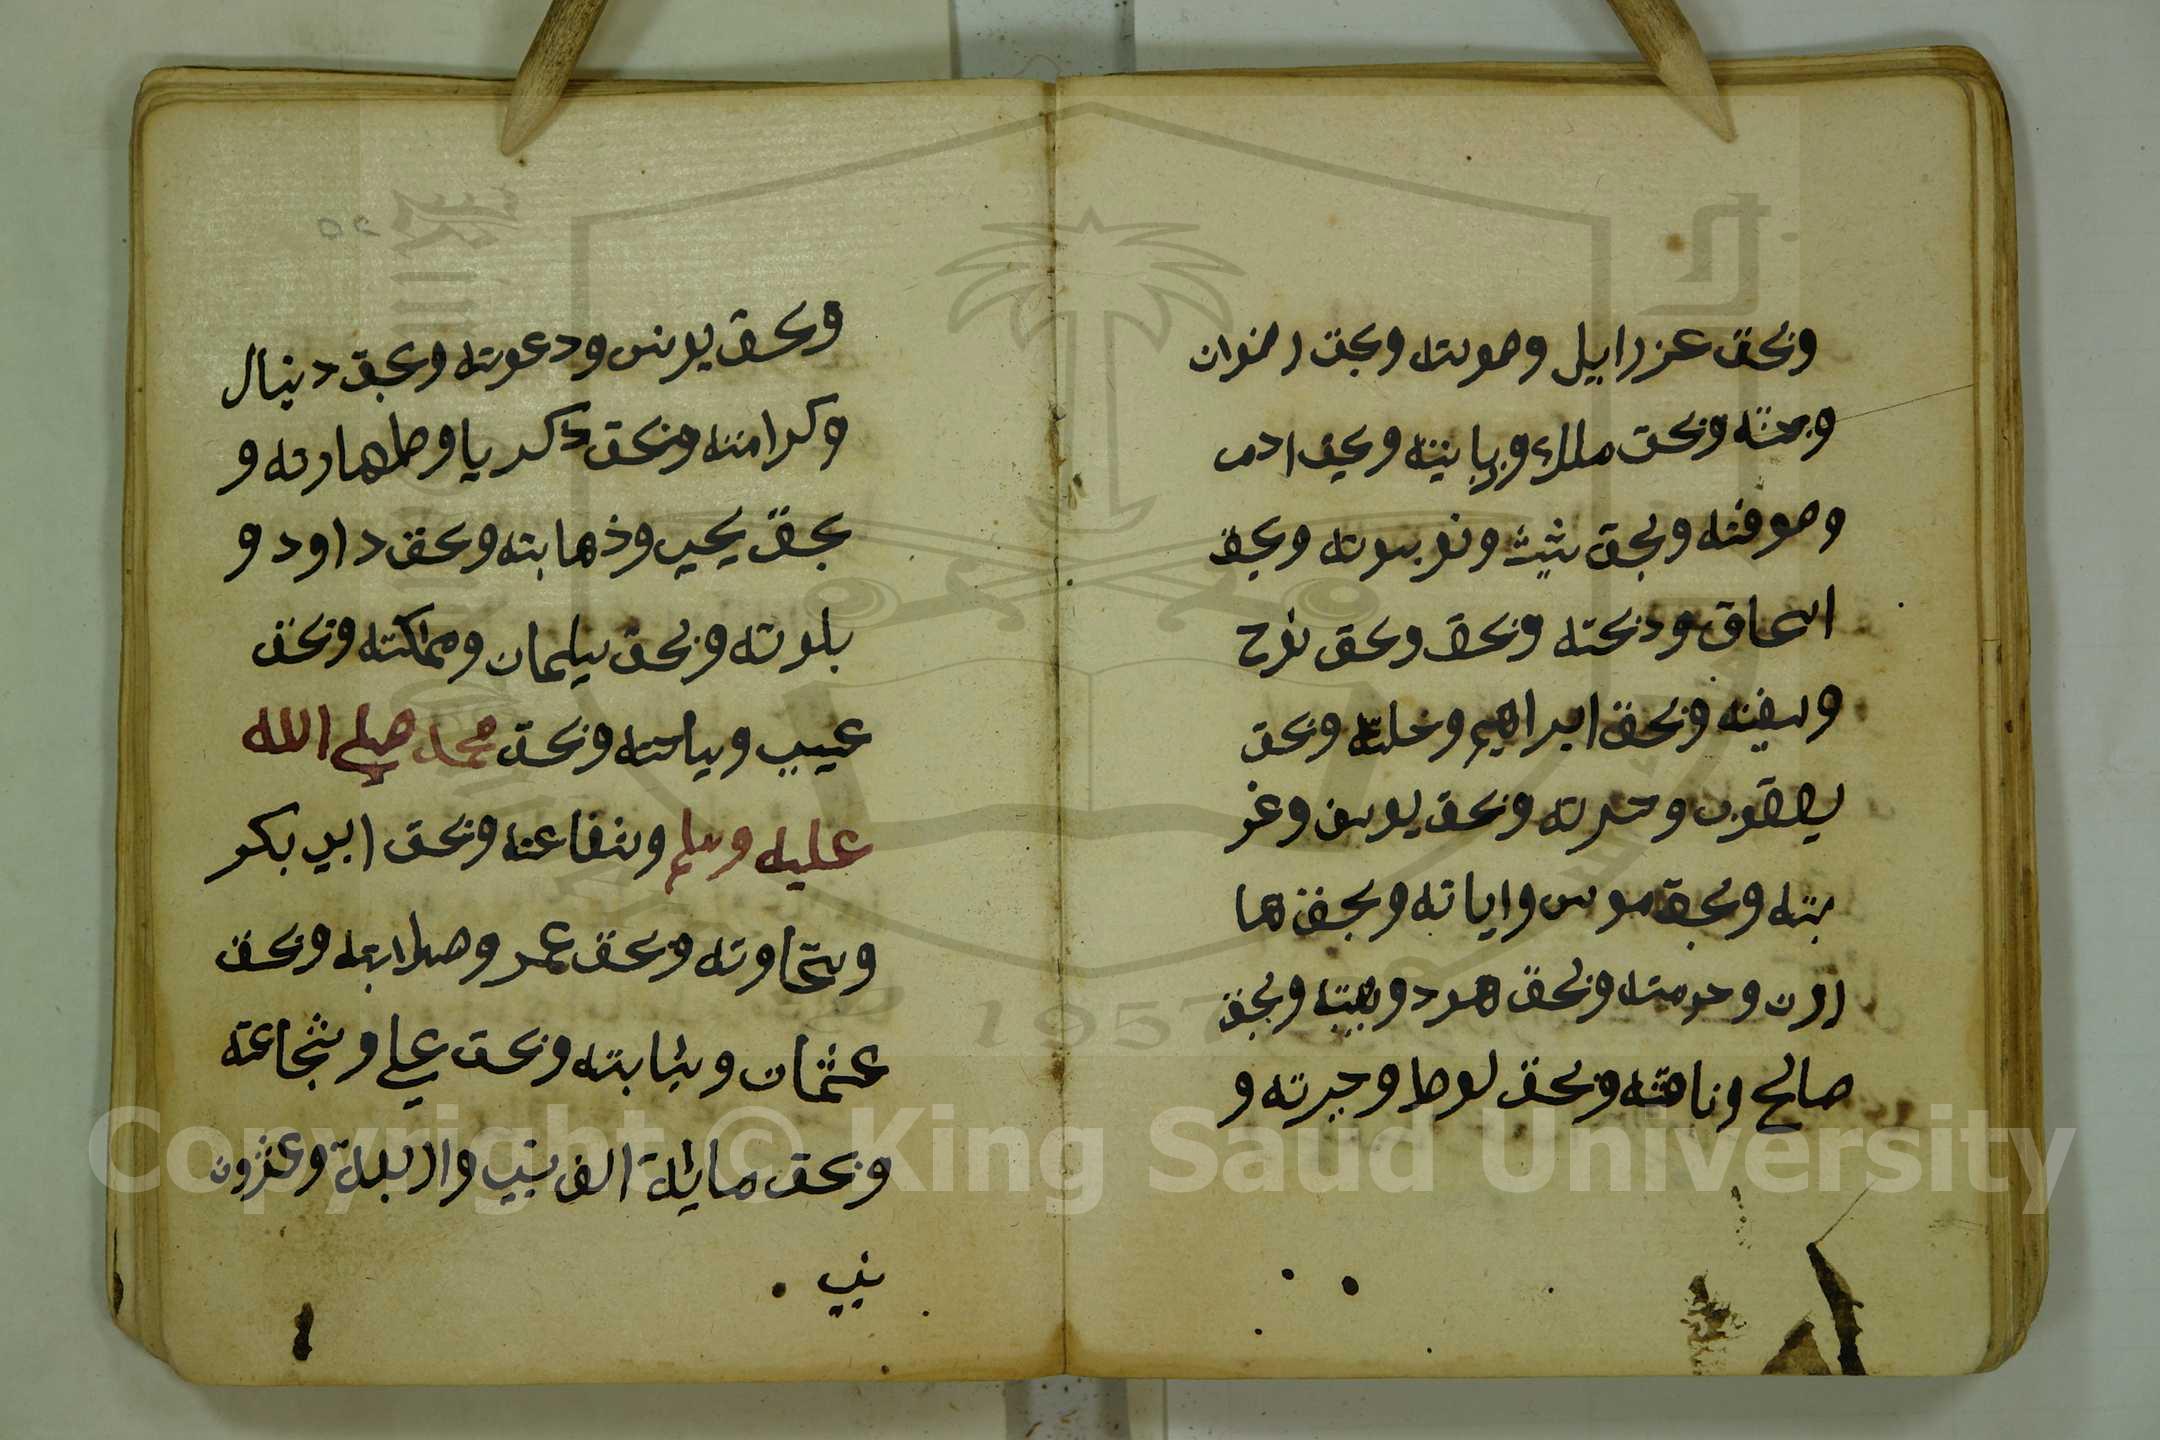 وبحق عزراييل وصوته وبحق رضوان
وجنته وبحق ملك وزبانيته وبحق ادم
وصوفته وبحق شيث ونو بوته وبحق
اسحاق وذبحته وبحق وبحق نوح
وسفينه وبحق ابراهيم وخلته وبحق
يعقوب وحسرته وبحق يوسف وغر
بته وبحق موسى واياته وبحق ها
رون وحرمته وبحق هود وهيبته وبحق
صالح وناقته وبحق لوط وجيرته و
وبحق يونس ودعوته وبحق دنيال
وكرامته وبحق ذكريا وطهارته و
بحق يحيى وذهابته وبحق داود و
بلوته وبحق سليمان ومملكته وبحق
عيسى وسياحته وبحق محمد صلى الله
عليه وسلم وشفاعته وبحق ابي بكر
وسخاوته وبحق عمر وصلابته وبحق
عثمان وشابته وبحق علي وشجاعته
وبحق ماية الف نبي واربعة وعشرون
نبي
٥٢
Copyright © King Saud University
1957